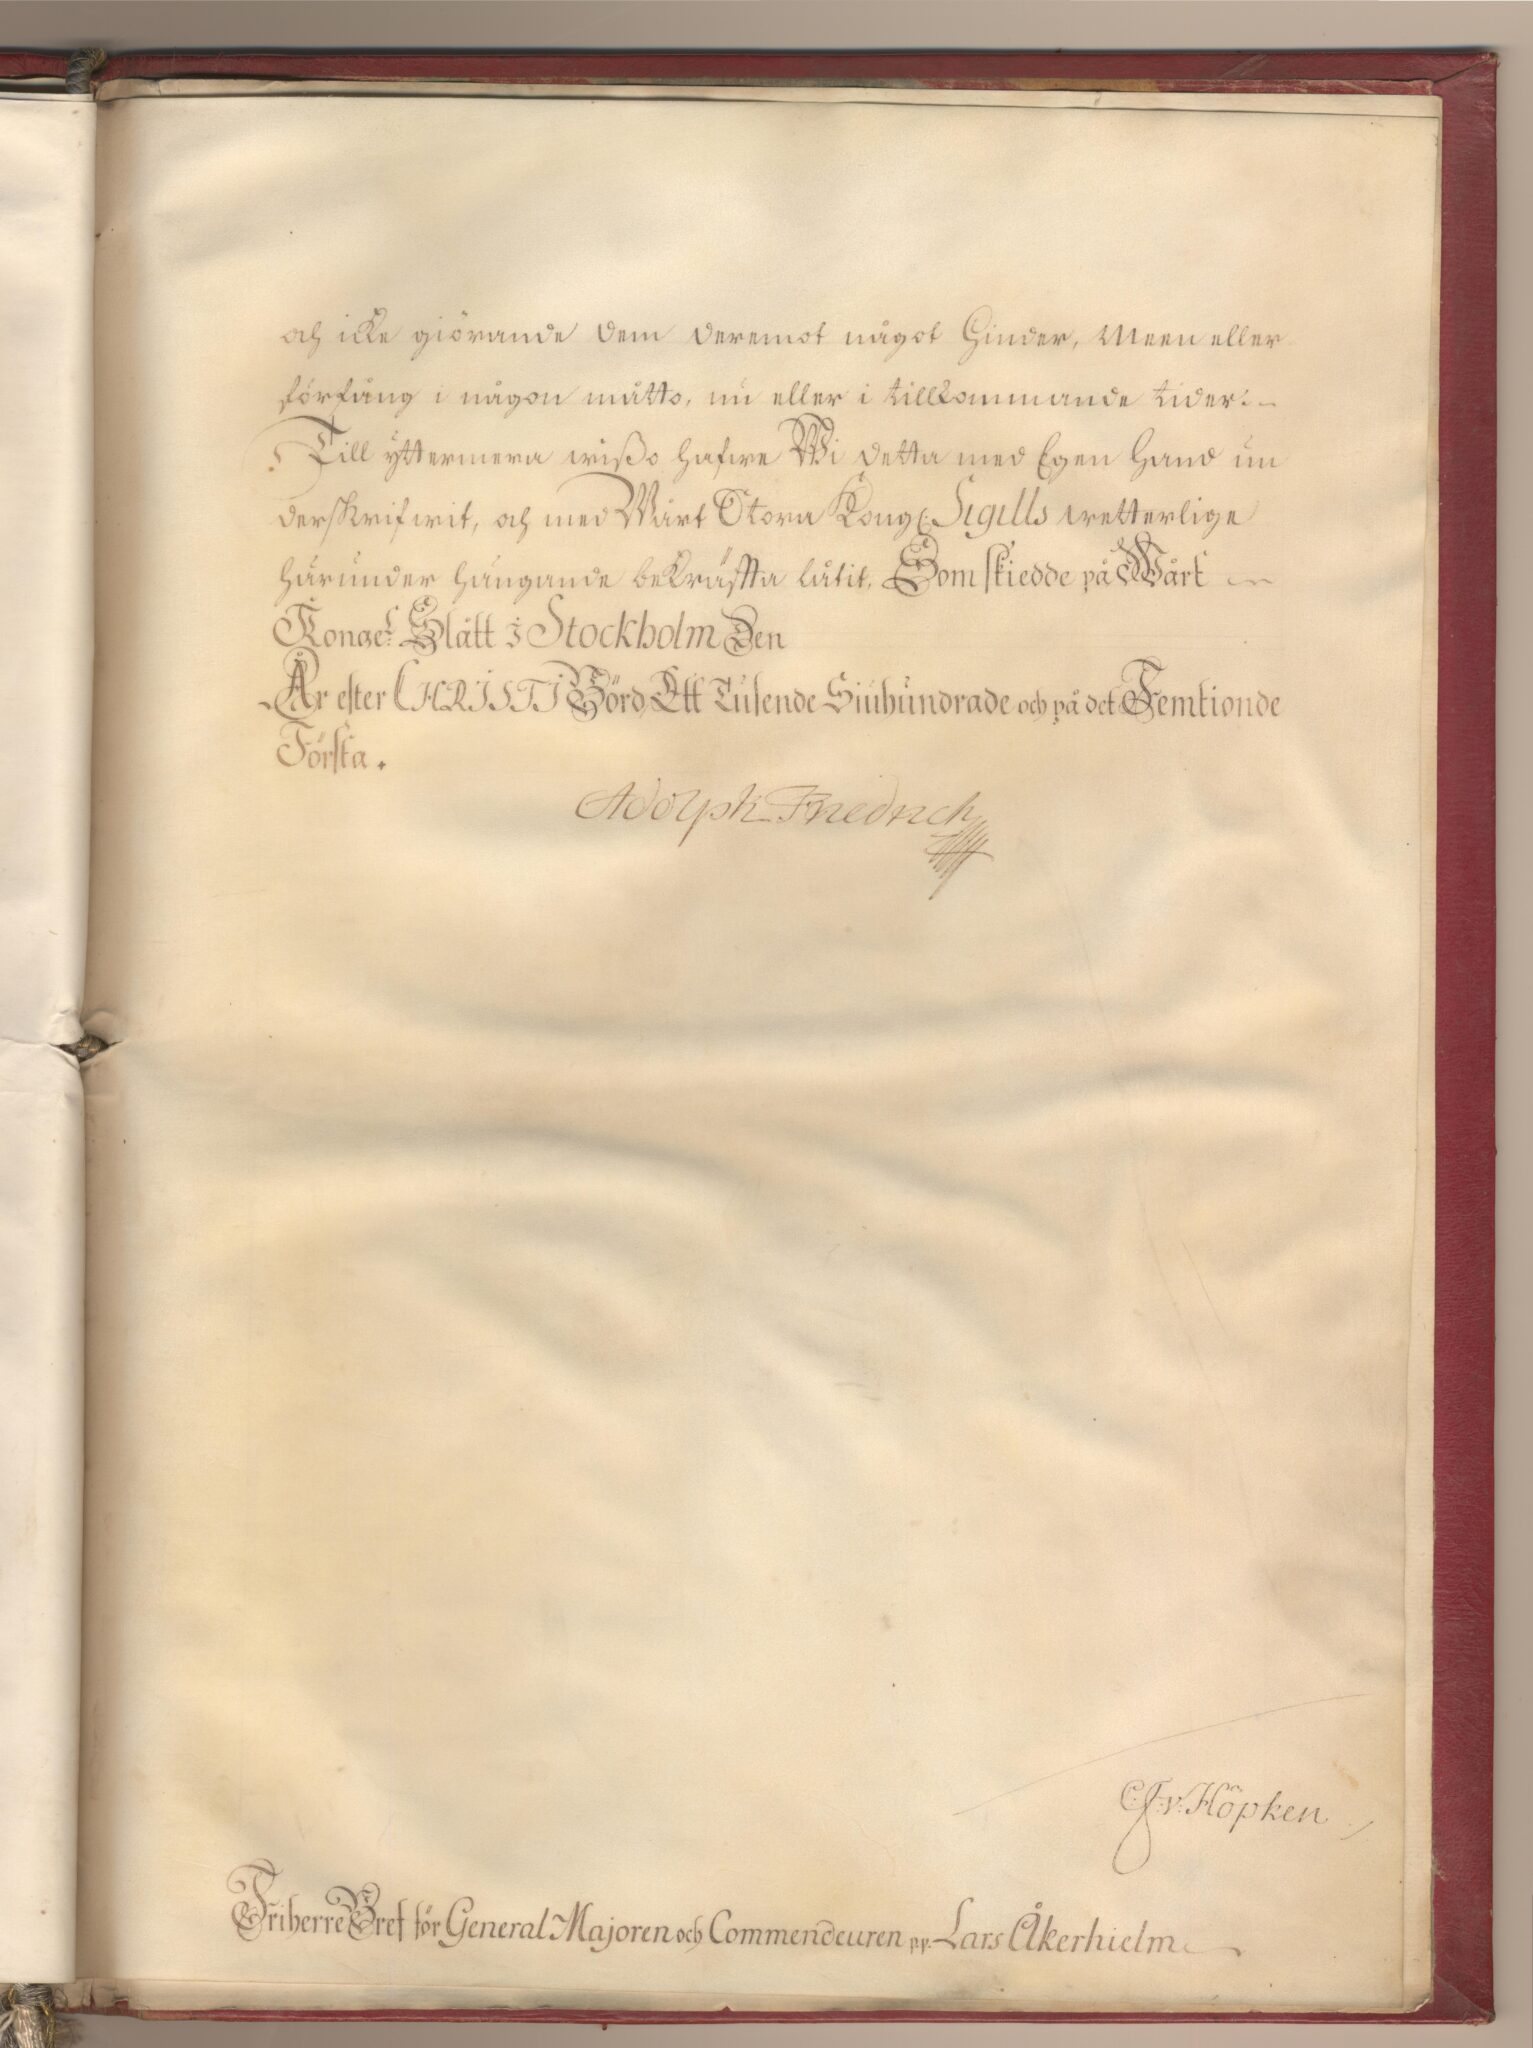 och icke giörande dem deremot något Hinder, Meen eller
förfång i någon måtto, nu eller i tillkommande tider:
Till yttermera wißo hafwe Wi detta med Egen Hand un
derskrifwit, och med Wårt Stora Kongl: Sigills wetterlige
härunder hängande bekräfta låtit. Som skiedde på Wårt
Konge:l Slått i Stockholm Den
År efter CHRISTI Börd Ett Tusende Siuhundrade och på det Femtionde
Första.
Adolph Friedrich
C:F:v:Höpken
Friherre Bref för General Majoren och Commendeuren pp. Lars Åkerhielm